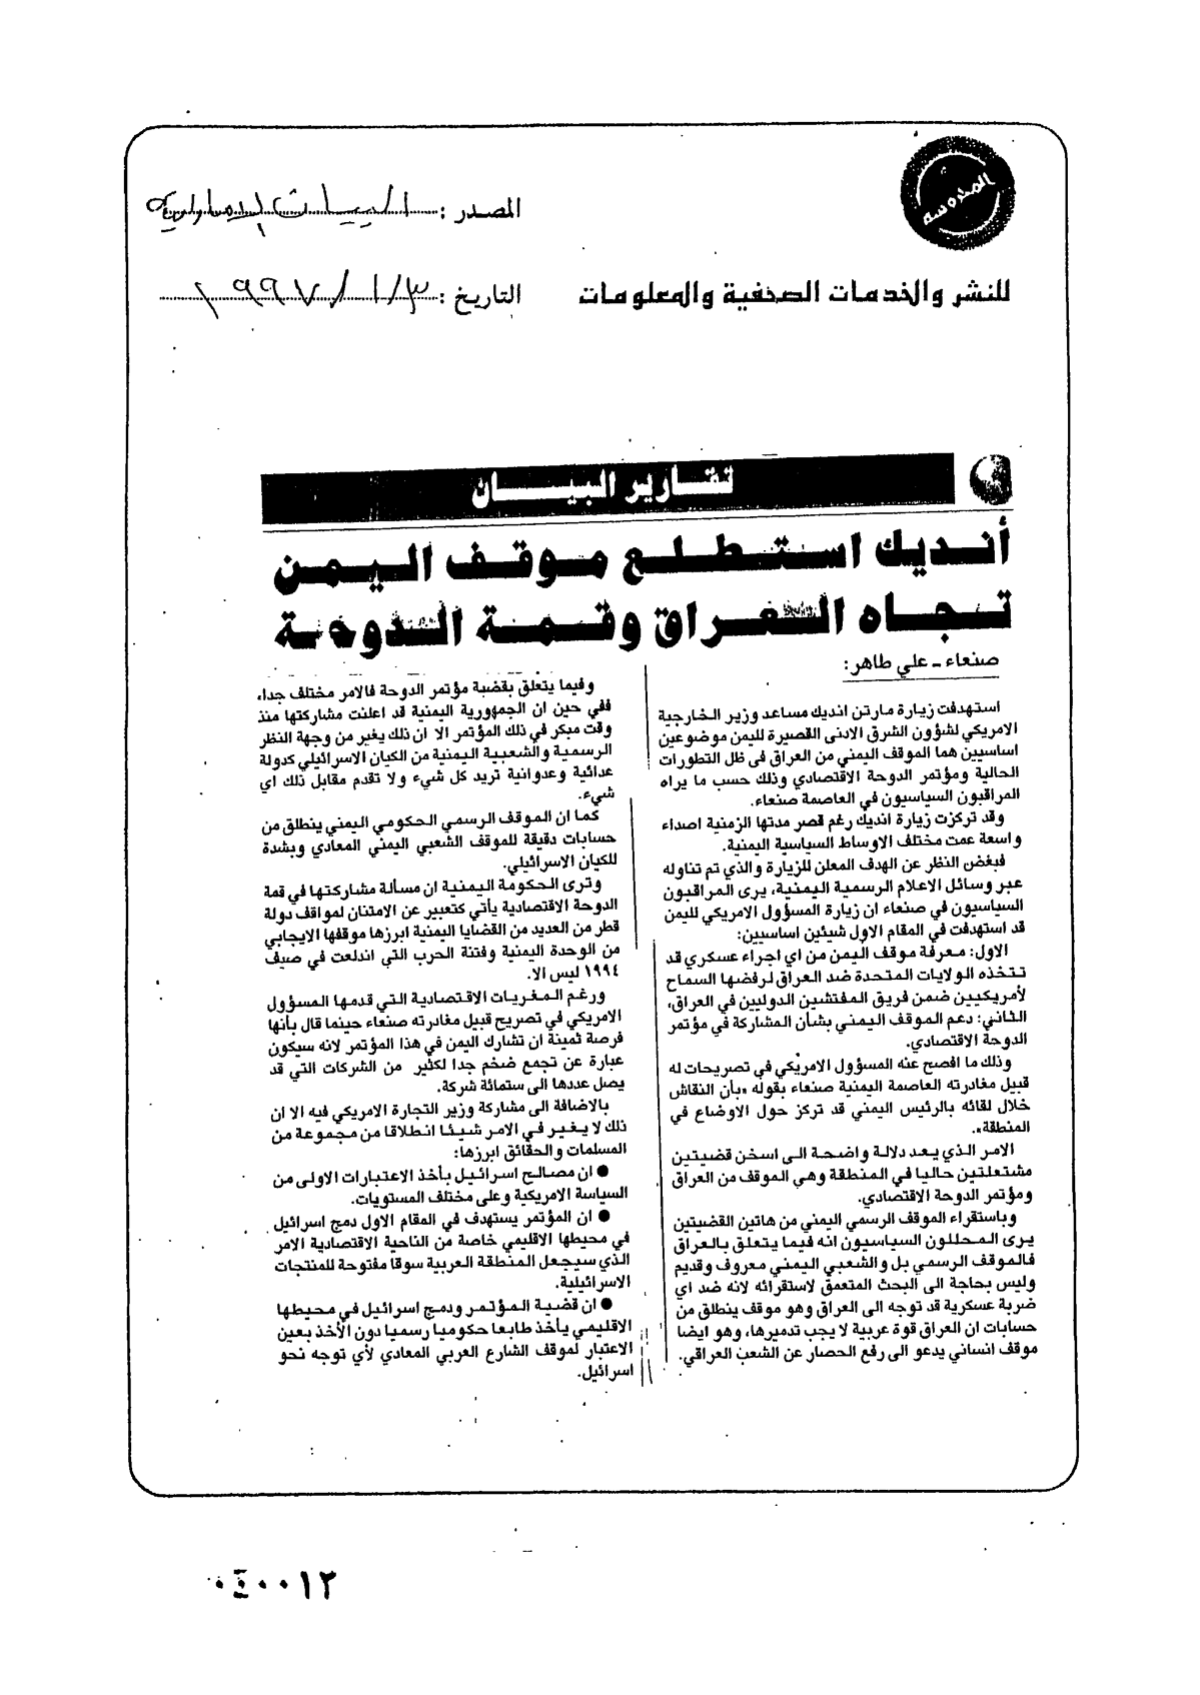 المحروسة
المصدر : البيان الإماراتية
للنشر والخدمات الصحفية والمعلومات
التاريخ : ٣/١/١٩٩٧
تقارير البيان
أنديك استطلع موقف اليمن
تجاه العراق وقمة الدوحة
صنعاء ـ علي طاهر:
استهدفت زيارة مارتن انديك مساعد وزير الخارجية
الامريكي لشؤون الشرق الادنى القصيرة لليمن موضوعين
اساسيين هما الموقف اليمني من العراق في ظل التطورات
الحالية ومؤتمر الدوحة الاقتصادي وذلك حسب ما يراه
المراقبون السياسيون في العاصمة صنعاء.
وقد تركزت زيارة انديك رغم قصر مدتها الزمنية اصداء
واسعة عمت مختلف الاوساط السياسية اليمنية.
فبغض النظر عن الهدف المعلن للزيارة والذي تم تناوله
عبر وسائل الاعلام الرسمية اليمنية، يرى المراقبون
السياسيون في صنعاء ان زيارة المسؤول الامريكي لليمن
قد استهدفت في المقام الاول شيئين اساسيين:
الاول: معرفة موقف اليمن من اي اجراء عسكري قد
تتخذه الولايات المتحدة ضد العراق لرفضها السماح
لأمريكيين ضمن فريق المفتشين الدوليين في العراق،
الثاني: دعم الموقف اليمني بشأن المشاركة في مؤتمر
الدوحة الاقتصادي.
وذلك ما افصح عنه المسؤول الامريكي في تصريحات له
قبيل مغادرته العاصمة اليمنية صنعاء بقوله «بأن النقاش
خلال لقائه بالرئيس اليمني قد تركز حول الاوضاع في
المنطقة».
الامر الذي يعد دلالة واضحة الى اسخن قضيتين
مشتعلتين حاليا في المنطقة وهي الموقف من العراق
ومؤتمر الدوحة الاقتصادي.
وباستقراء الموقف الرسمي اليمني من هاتين القضيتين
يرى المحللون السياسيون انه فيما يتعلق بالعراق
فالموقف الرسمي بل والشعبي اليمني معروف وقديم
وليس بحاجة الى البحث المتعمق لاستقرائه لانه ضد اي
ضربة عسكرية قد توجه الى العراق وهو موقف ينطلق من
حسابات ان العراق قوة عربية لا يجب تدميرها، وهو ايضا
موقف انساني يدعو الى رفع الحصار عن الشعب العراقي.
وفيما يتعلق بقضية مؤتمر الدوحة فالامر مختلف جدا،
ففي حين ان الجمهورية اليمنية قد اعلنت مشاركتها منذ
وقت مبكر في ذلك المؤتمر الا ان ذلك يغير من وجهة النظر
الرسمية والشعبية اليمنية من الكيان الاسرائيلي كدولة
عدائية وعدوانية تريد كل شيء ولا تقدم مقابل ذلك اي
شيء.
كما ان الموقف الرسمي الحكومي اليمني ينطلق من
حسابات دقيقة للموقف الشعبي اليمني المعادي وبشدة
للكيان الاسرائيلي.
وترى الحكومة اليمنية ان مسألة مشاركتها في قمة
الدوحة الاقتصادية يأتي كتعبير عن الامتنان لمواقف دولة
قطر من العديد من القضايا اليمنية ابرزها موقفها الايجابي
من الوحدة اليمنية وفتنة الحرب التي اندلعت في صيف
١٩٩٤ ليس الا.
ورغم المغريات الاقتصادية التي قدمها المسؤول
الامريكي في تصريح قبيل مغادرته صنعاء حينما قال بأنها
فرصة ثمينة ان تشارك اليمن في هذا المؤتمر لانه سيكون
عبارة عن تجمع ضخم جدا لكثير من الشركات التي قد
يصل عددها الى ستمائة شركة.
بالاضافة الى مشاركة وزير التجارة الامريكي فيه الا ان
ذلك لا يغير في الامر شيئا انطلاقا من مجموعة من
المسلمات والحقائق ابرزها:
● ان مصالح اسرائيل يأخذ الاعتبارات الاولى من
السياسة الامريكية وعلى مختلف المستويات.
● ان المؤتمر يستهدف في المقام الاول دمج اسرائيل
في محيطها الاقليمي خاصة من الناحية الاقتصادية الامر
الذي سيجعل المنطقة العربية سوقا مفتوحة للمنتجات
الاسرائيلية.
● ان قضية المؤتمر ودمج اسرائيل في محيطها
الاقليمي يأخذ طابعا حكوميا رسميا دون الأخذ بعين
الاعتبار لموقف الشارع العربي المعادي لأي توجه نحو
اسرائيل.
٠٤٠٠١٢